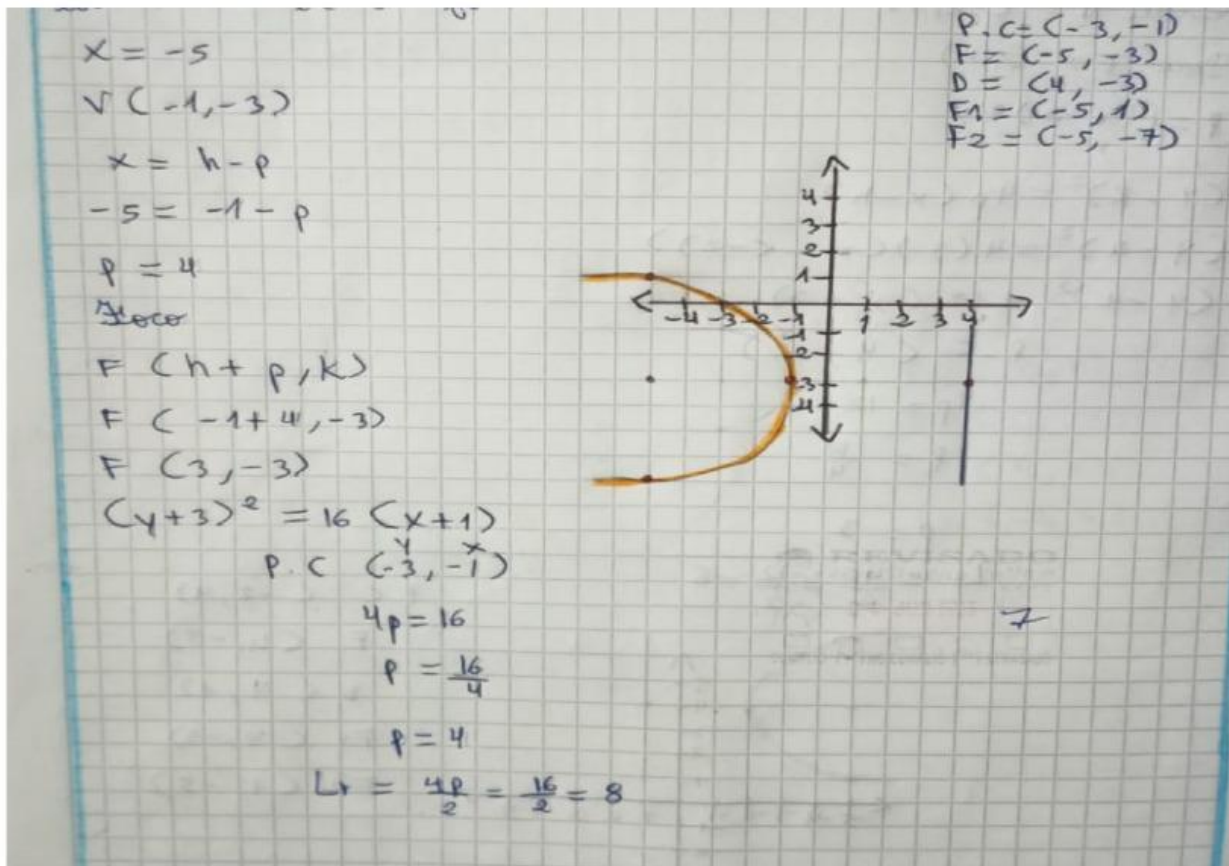 x = -5
V (-1, -3)
x = h - p
-5 = -1 - p
p = 4
Foco
F (h + p, k)
F (-1 + 4, -3)
F (3, -3)
(y+3)² = 16 (x+1)
y x
P.C (-3, -1)
4p = 16
p = 16/4
p = 4
Lr = 4p/2 = 16/2 = 8
P.C = (-3, -1)
F = (-5, -3)
D = (4, -3)
F1 = (-5, 1)
F2 = (-5, -7)
4
3
2
1
-4 -3 -2 -1 1 2 3 4
-1
-2
-3
-4
7